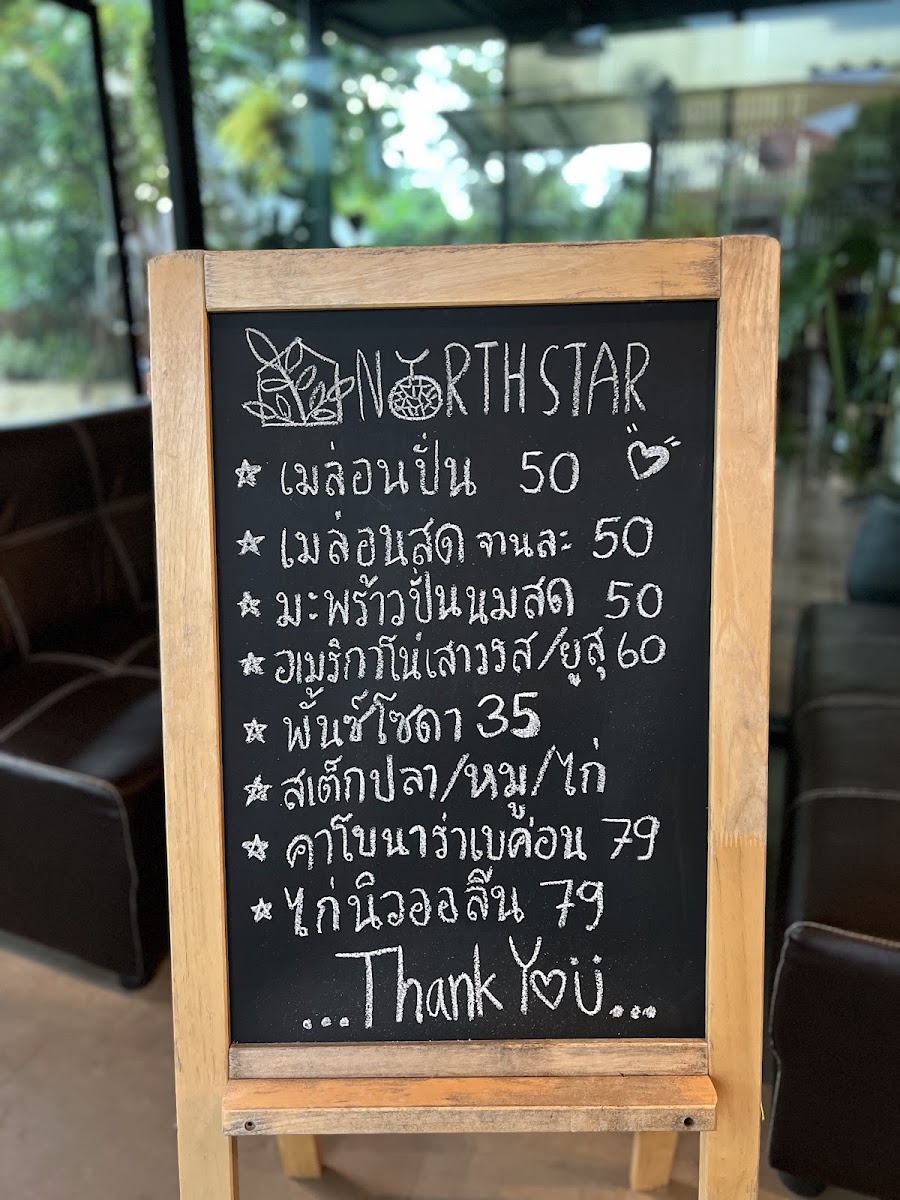 NORTHSTAR
เมล่อนปั่น 50
เมล่อนสด จานละ 50
มะพร้าวปั่นนมสด 50
อเมริกาโน่เสาวรส/ยูสุ 60
พั้นซ์โซดา 35
สเต็กปลา/หมู/ไก่
คาโบนาร่าเบค่อน 79
ไก่นิวออลีน 79
...Thank You...